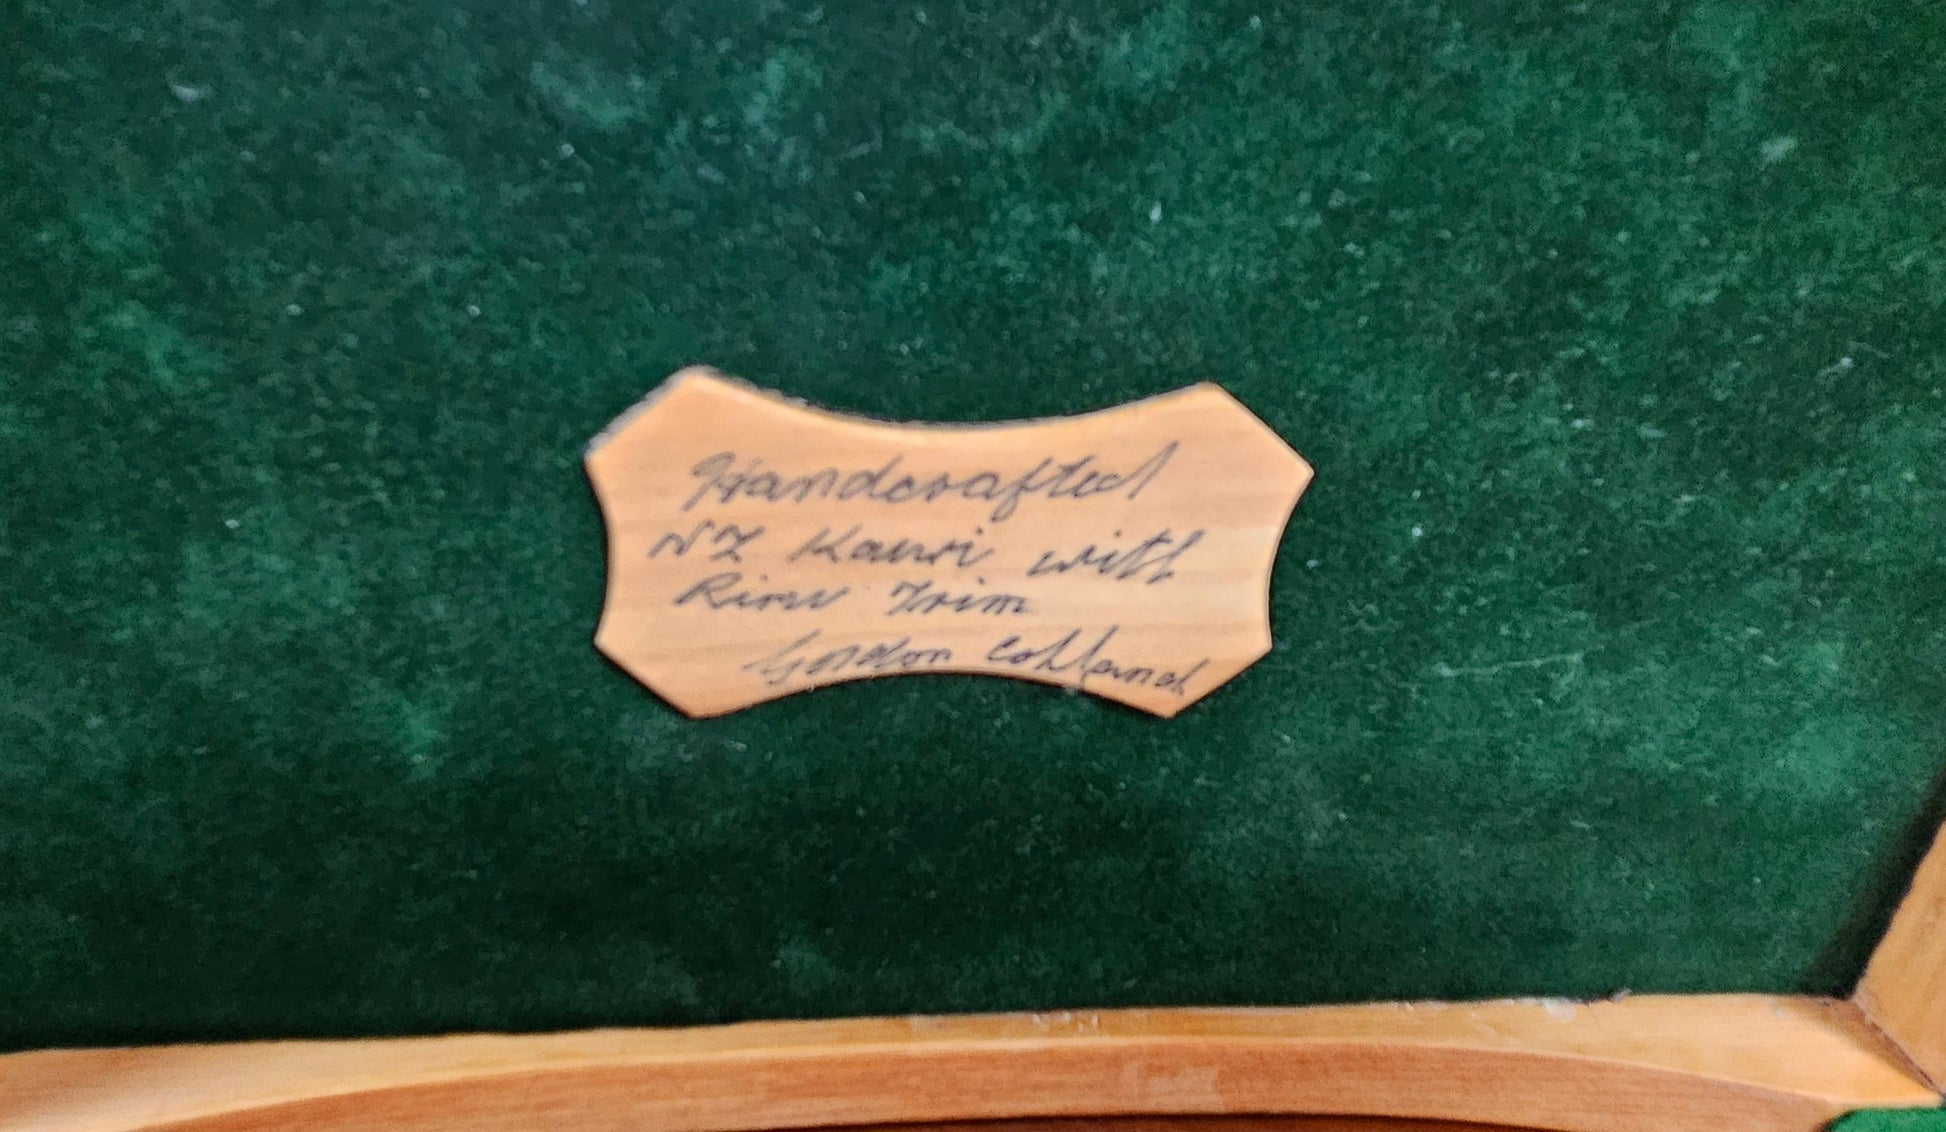 Handcrafted
NZ Kauri with
Rimu Trim
Gordon